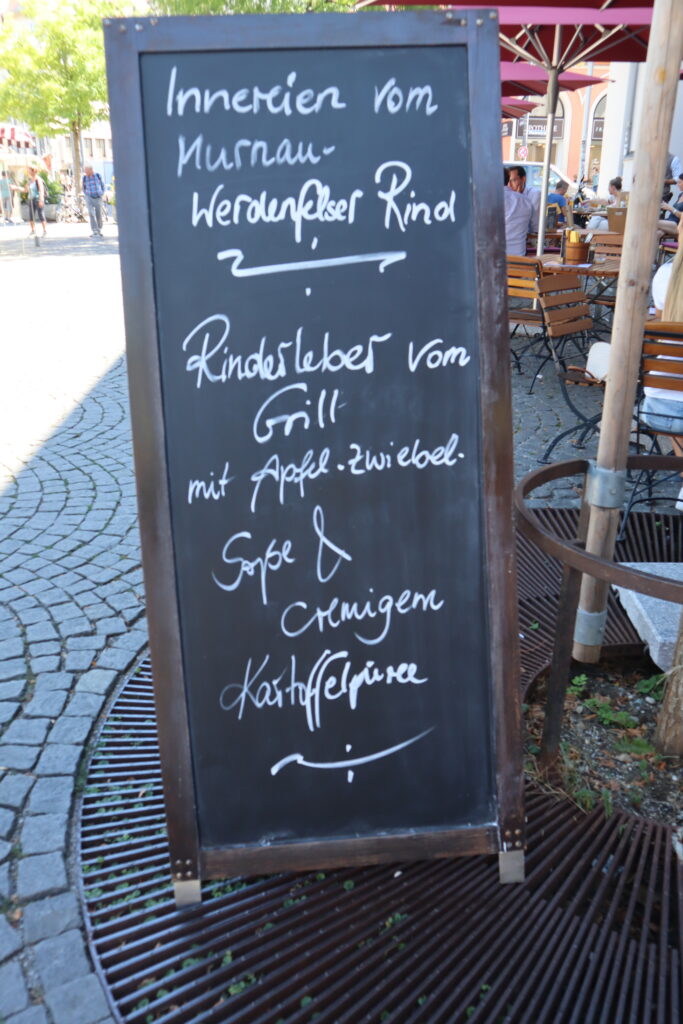 Innereien vom
Murnau-
Werdenfelser Rind
Rinderleber vom
Grill
mit Apfel-Zwiebel-
Soße &
cremigem
Kartoffelpüree